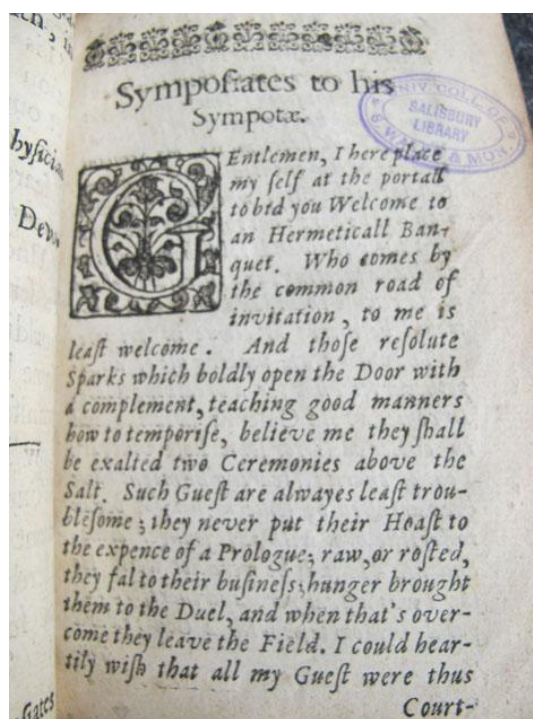 Sympoſiates to his
Sympotæ.
GEntlemen, I here place
my ſelf at the portall
to bid you Welcome to
an Hermeticall Ban-
quet. Who comes by
the common road of
invitation, to me is
leaſt welcome. And thoſe reſolute
Sparks which boldly open the Door with
a complement, teaching good manners
how to temporiſe, believe me they ſhall
be exalted two Ceremonies above the
Salt. Such Gueſt are alwayes leaſt trou-
bleſome; they never put their Hoaſt to
the expence of a Prologue; raw, or roſted,
they fal to their buſineſs; hunger brought
them to the Duel, and when that's over-
come they leave the Field. I could hear-
tily wiſh that all my Gueſt were thus
Court-
UNIV. COLL. OF
SALISBURY
LIBRARY
S. WALES & MON.